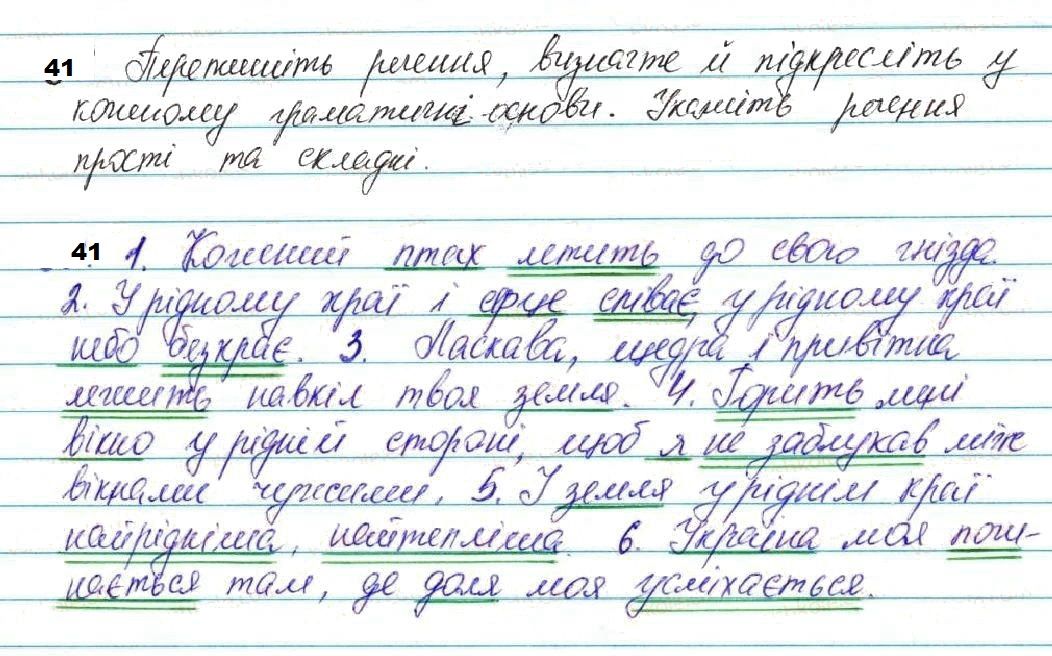 41 Перепишіть речення, визначте й підкресліть у
кожному граматичні основи. Укажіть речення
прості та складні.
41 1. Кожний птах летить до свого гнізда.
2. У рідному краї і серце співає, у рідному краї
небо безкрає. 3. Ласкава, щедра і привітна
лежить навкіл твоя земля. 4. Горить мені
вікно у рідній стороні, щоб я не заблукав між
вікнами чужими. 5. І земля у ріднім краї
найрідніша, найтепліша. 6. Україна моя почи-
нається там, де доля моя усміхається.